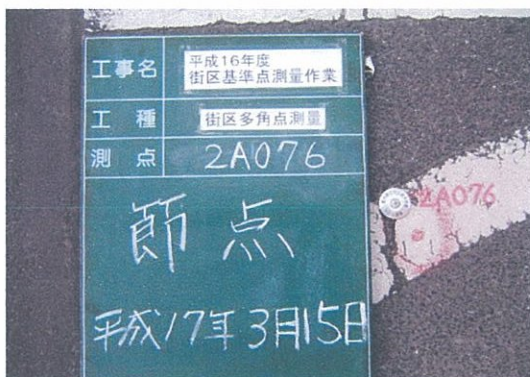 工事名
平成16年度
街区基準点測量作業
工種
街区多角点測量
測点
2A076
節点
平成17年3月15日
2A076